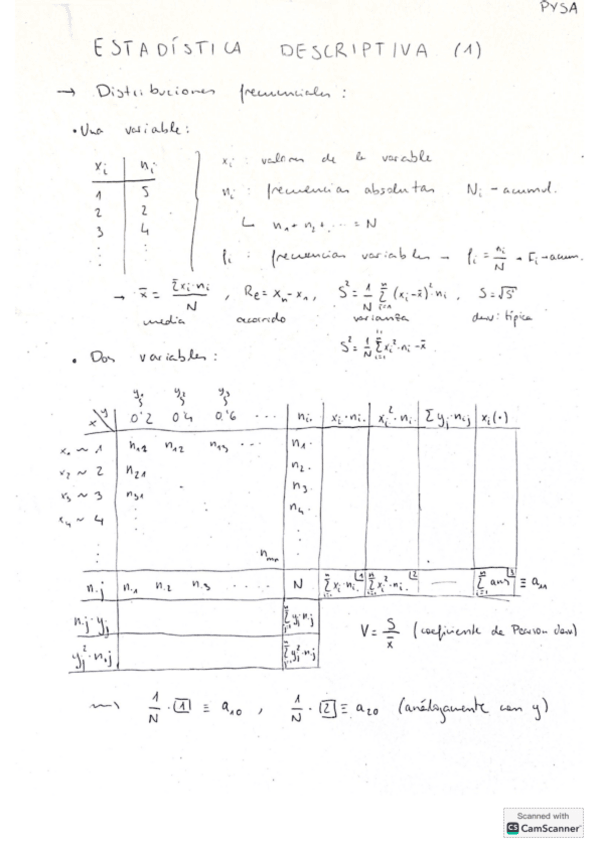 PYSA
ESTADÍSTICA DESCRIPTIVA (1)
→ Distribuciones frecuenciales:
• Una variable:
xi | ni
1 | 5
2 | 2
3 | 4
⋮ | ⋮
xi : valores de la variable
ni : frecuencias absolutas Ni - acumul.
↳ n1 + n2 + ... = N
fi : frecuencias variables → fi = ni/N → Fi - acum.
→ x̄ = Σxi·ni / N , Re = xn - x1 , S² = 1/N Σ(xi - x̄)²·ni , S = √S²
media recorrido varianza desv. típica
S² = 1/N Σxi²·ni - x̄
• Dos variables:
y1 y2 y3
x\y | 0'2 0'4 0'6 ... | ni. | xi·ni. | xi²·ni. | Σyj·nij | xi(·)
x1 ~ 1 | n11 n12 n13 ... | n1.
x2 ~ 2 | n21 | n2.
x3 ~ 3 | n31 | n3.
x4 ~ 4 | n4.
nmn
n.j | n.1 n.2 n.3 .... | N | Σxi·ni. [1] | Σxi²·ni. [2] | — | Σ ant [3] ≡ a11
n.j·yj | Σyj·n.j
yj²·n.j | Σyj²·n.j
V = S/x̄ (coeficiente de Pearson)
⟿ 1/N · [1] ≡ a10 , 1/N · [2] ≡ a20 (análogamente con y)
Scanned with
CS CamScanner